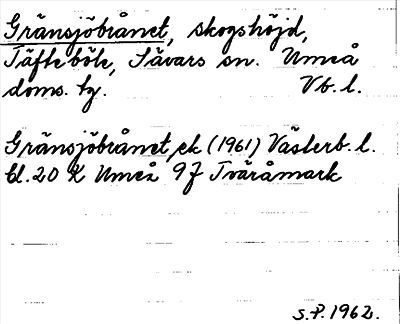 Gränsjöbrånet, skogshöjd,
Täfteböle, Sävars sn. Umeå
doms. tg. Vb. l.
Gränsjöbrånet ek (1961) Västerb. l.
bl. 20 K Umeå 9 f Tväråmark
S.P. 1962.